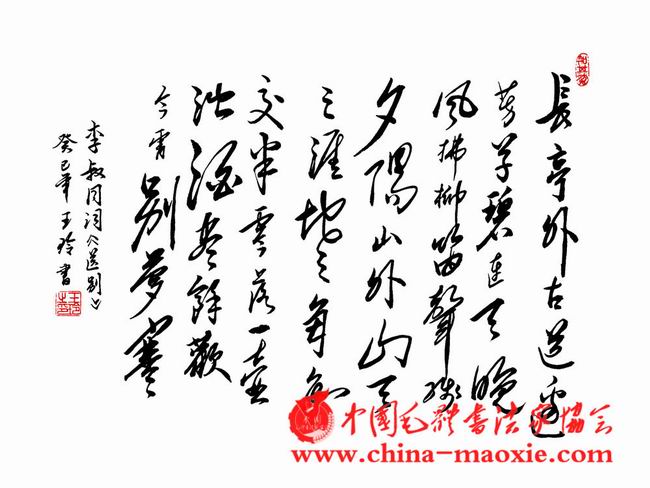 長亭外古道邊
芳草碧連天晚
風拂柳笛聲殘
夕陽山外山天
之涯地之角知
交半零落一壺
浊酒盡餘歡
今宵別夢寒
李叔同词《送别》
癸巳年王玲書
中國毛體書法家協會
www.china-maoxie.com